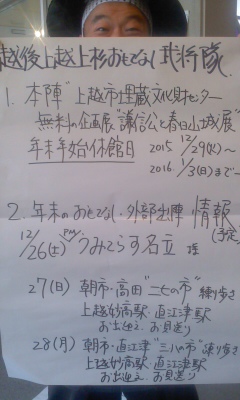 越後上越上杉おもてなし武将隊
1. 本陣 "上越市埋蔵文化財センター
無料の企画展"謙信公と春日山城展"
年末年始休館日 2015 12/29(火)〜
2016 1/3(日)まで〜
2. 年末のおもてなし・外部出陣 情報
(予定)
12/26(土) PM/ うみてらす名立 様
27(日) 朝市・高田"二七の市" 練り歩き
上越妙高駅・直江津駅
お出迎え お見送り
28(月) 朝市・直江津"三八の市" 練り歩き
上越妙高駅・直江津駅
お出迎え お見送り